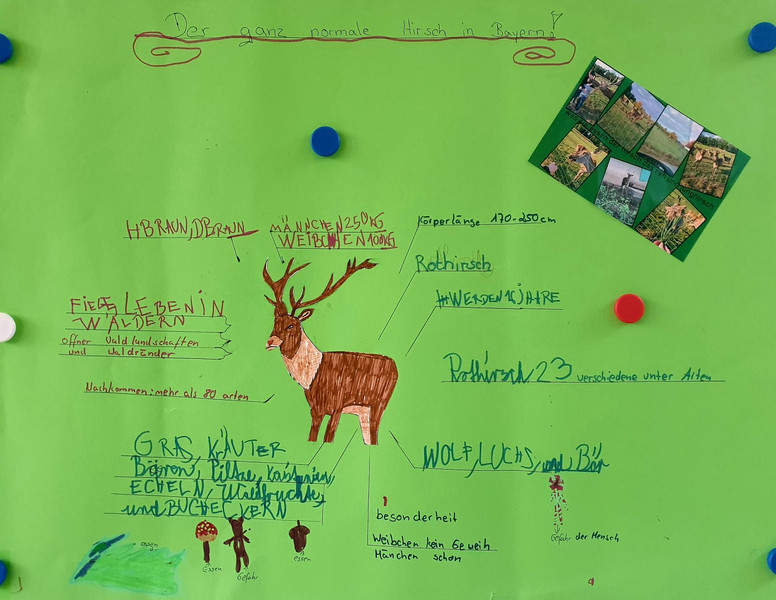 Der ganz normale Hirsch in Bayern!
HBRAUN, DBRAUN
MÄNNCHEN 250KG
WEIBCHEN 100KG
Körperlänge 170-250cm
Rothirsch
WERDEN 16 JAHRE
LEBEN IN
WÄLDERN
offner Waldlandschaften
und Waldränder
Rothirsch 23 verschiedene unter Arten
Nachkommen: mehr als 80 arten
GRAS, KÄUTER
Bären, Piltze, Kastanien,
ECHELN, Waldfrüchte,
und BUCHECKERN
WOLF, LUCHS, und Bär
besonderheit
Weibchen kein Geweih
Mänchen schon
Gefahr der Mensch
essen
Essen
Gefahr
essen